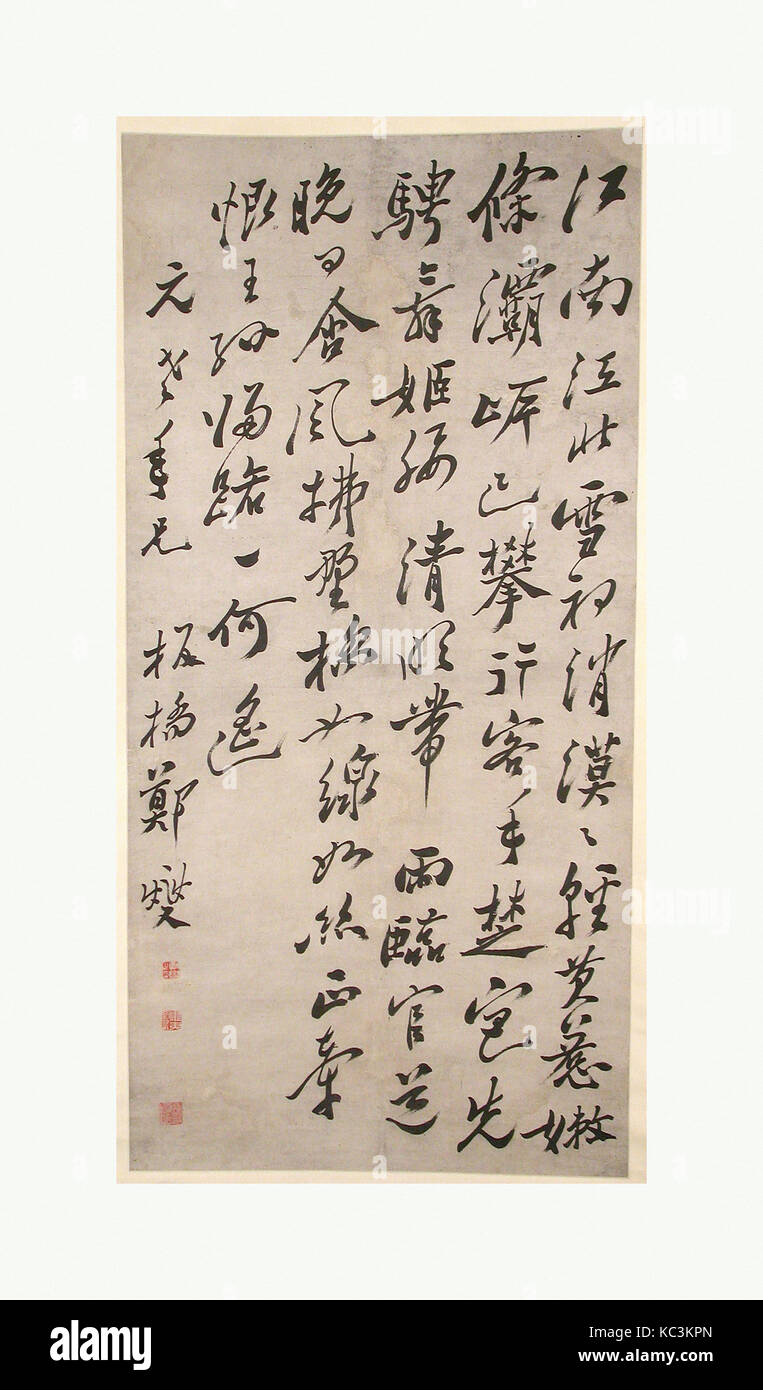 江南江北雪初消漠〻輕黄惹嫩
條灞岸已攀行客手楚宮先
騁舞姬腰清明帶雨臨官道
晚日含風拂野橋如線如絲正牽
恨王孫歸路一何遙
元老年兄 板橋鄭燮
alamy
Image ID: KC3KPN
www.alamy.com